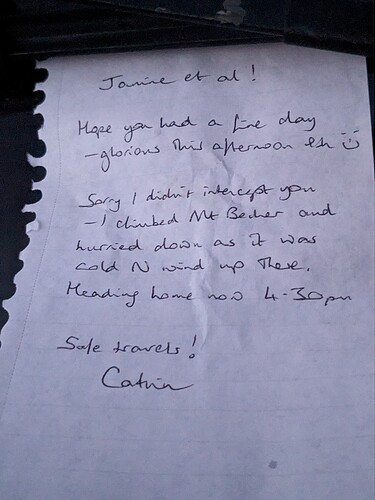 Janine et al!
Hope you had a fine day
- glorious this afternoon eh
Sorry I didn't intercept you
- I climbed Mt Becher and
hurried down as it was
cold N wind up there.
Heading home now 4-30pm
Safe travels!
Catrin